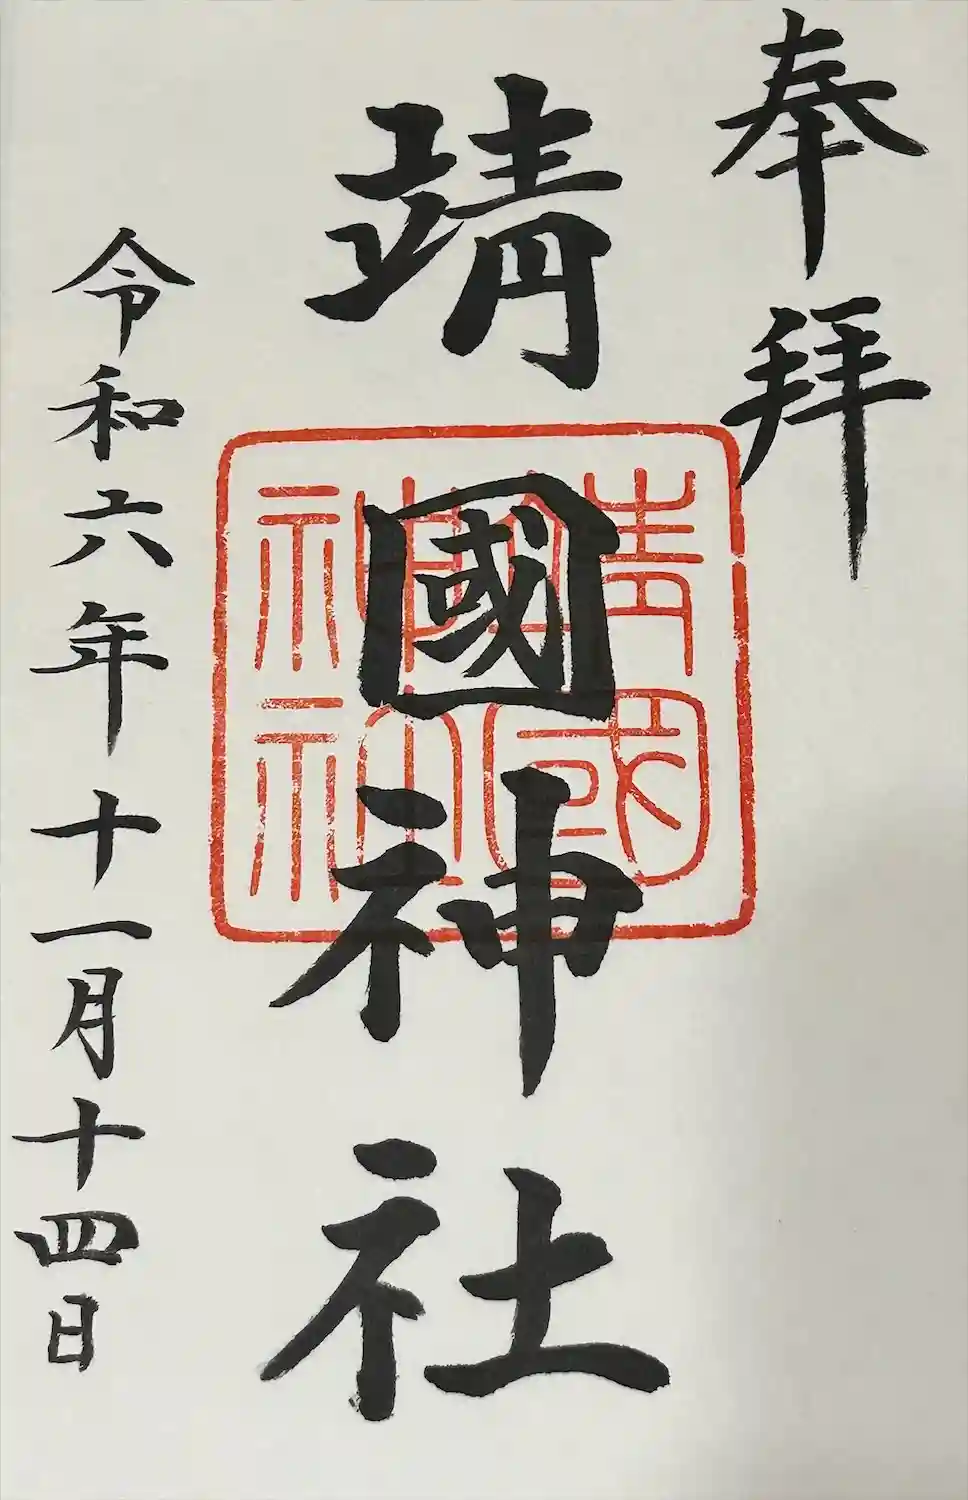 奉拜
靖國神社
靖國
神社
令和六年十一月十四日